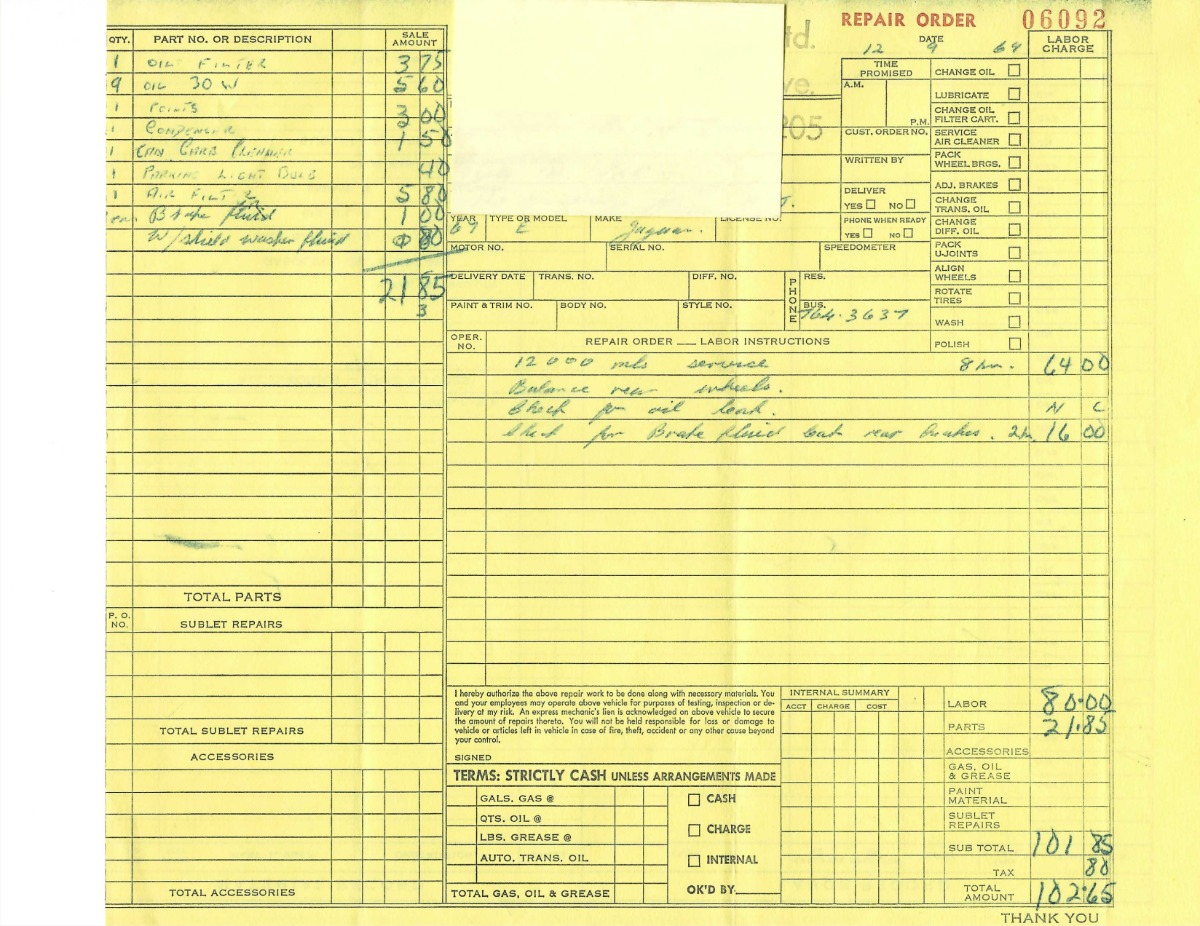 REPAIR ORDER 06092
td.
ve.
205
QTY. PART NO. OR DESCRIPTION SALE AMOUNT
1 OIL FILTER 3 75
9 OIL 30 W 5 60
1 POINTS 3 00
1 CONDENSER 1 50
1 CAN CARB CLEANER
1 PARKING LIGHT BULB 40
1 AIR FILT 5 80
Brake fluid 1 00
W/shield washer fluid 80
21 85
3
TOTAL PARTS
P. O. NO. SUBLET REPAIRS
TOTAL SUBLET REPAIRS
ACCESSORIES
TOTAL ACCESSORIES
DATE
12 9 69
LABOR CHARGE
TIME PROMISED
A.M.
P.M.
CUST. ORDER NO.
WRITTEN BY
DELIVER
YES NO
PHONE WHEN READY
YES NO
CHANGE OIL
LUBRICATE
CHANGE OIL FILTER CART.
SERVICE AIR CLEANER
PACK WHEEL BRGS.
ADJ. BRAKES
CHANGE TRANS. OIL
CHANGE DIFF. OIL
PACK U-JOINTS
ALIGN WHEELS
ROTATE TIRES
WASH
POLISH
YEAR TYPE OR MODEL MAKE LICENSE NO.
67 E Jaguar.
MOTOR NO. SERIAL NO. SPEEDOMETER
DELIVERY DATE TRANS. NO. DIFF. NO. PHONE RES.
PAINT & TRIM NO. BODY NO. STYLE NO. BUS.
764-3637
OPER. NO. REPAIR ORDER — LABOR INSTRUCTIONS
12000 mls service 8 hr. 64 00
Balance rear wheels.
Check for oil leak. N C
Check for Brake fluid leak rear brakes. 2 hr. 16 00
I hereby authorize the above repair work to be done along with necessary materials. You
and your employees may operate above vehicle for purposes of testing, inspection or de-
livery at my risk. An express mechanic's lien is acknowledged on above vehicle to secure
the amount of repairs thereto. You will not be held responsible for loss or damage to
vehicle or articles left in vehicle in case of fire, theft, accident or any other cause beyond
your control.
SIGNED
TERMS: STRICTLY CASH UNLESS ARRANGEMENTS MADE
GALS. GAS @
QTS. OIL @
LBS. GREASE @
AUTO. TRANS. OIL
TOTAL GAS, OIL & GREASE
CASH
CHARGE
INTERNAL
OK'D BY
INTERNAL SUMMARY
ACCT CHARGE COST
LABOR 80.00
PARTS 21.85
ACCESSORIES
GAS, OIL & GREASE
PAINT MATERIAL
SUBLET REPAIRS
SUB TOTAL 101 85
TAX 80
TOTAL AMOUNT 102.65
THANK YOU